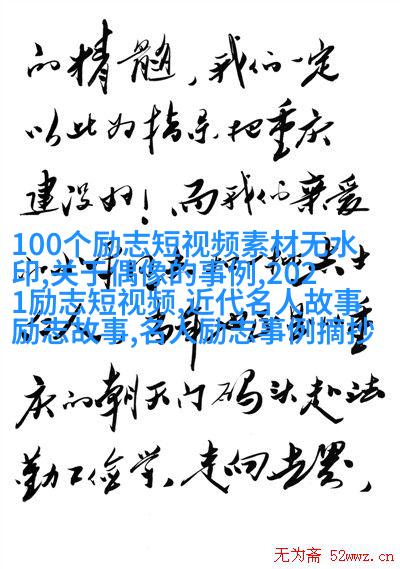 的精髓，我们一定
以此为指导把重庆
建设好！而我们亲爱
100个励志短视频素材无水
印,关于偶像的事例,202
1励志短视频,近代名人故事
励志故事,名人励志事例摘抄
庆的朝天门码头赴法
勤工俭学，走向世界，
无为斋 52wwz.cn